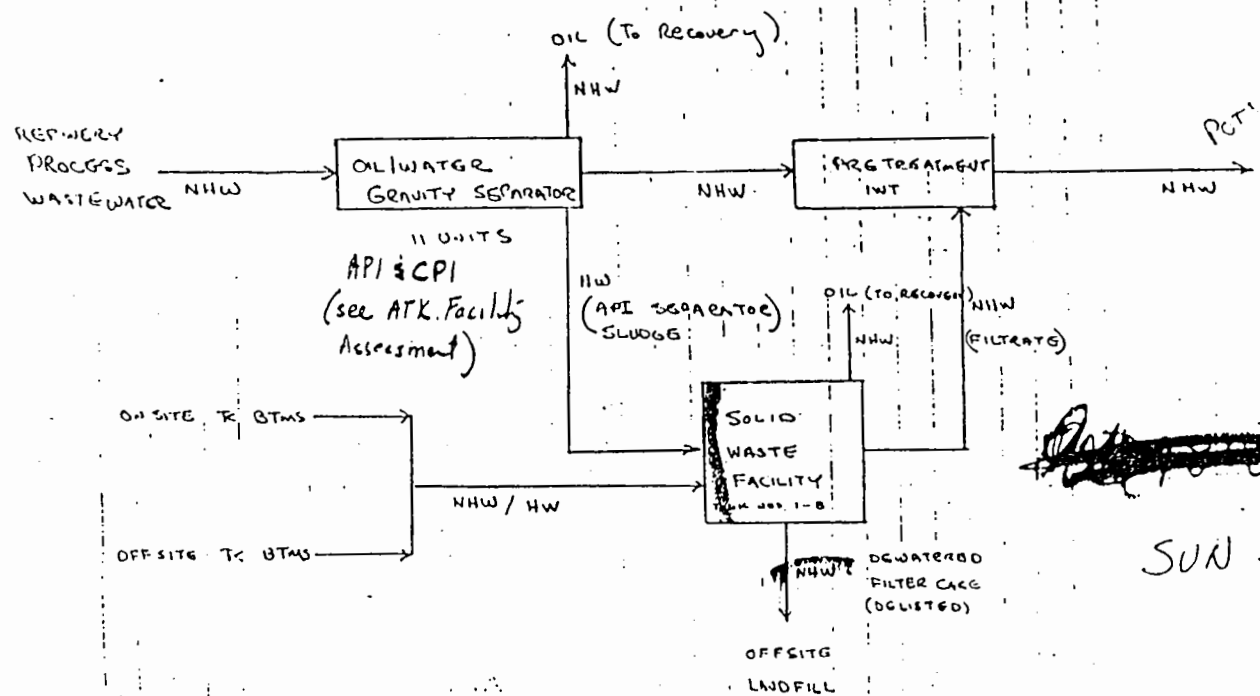 OIL (To Recovery)
NHW
REFINERY
PROCESS
WASTEWATER
NHW
OIL/WATER
GRAVITY SEPARATOR
NHW
PRETREATMENT
IWT
NHW
11 UNITS
API & CPI
(see ATK. Facility
Assessment)
HW
(API SEPARATOR)
SLUDGE
OIL (TO RECOVERY)
NHW
NHW
(FILTRATE)
ON SITE TK BTMS
OFFSITE TK BTMS
NHW / HW
SOLID
WASTE
FACILITY
TANK NOS. 1-8
NHW
DEWATERED
FILTER CAKE
(DELISTED)
OFFSITE
LANDFILL
SUN